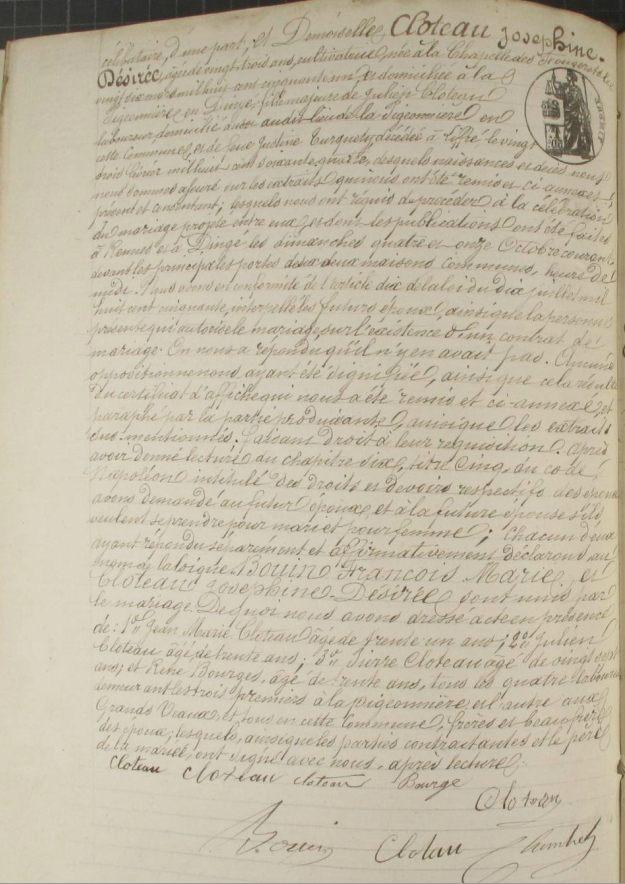 célibataire, d'une part; et Demoiselle, Cloteau Josephine-
Désirée, âgée de vingt trois ans, cultivatrice, née à la Chapelle des Fougeretz le
vingt six mil huit cent cinquante un et domiciliée à la
Pigeonnière en Dingé, fille majeure de Julien Cloteau
laboureur, domicilié aussi audit lieu de la Pigeonnière en
cette commune, et de feue Justine Turquety décédée à Liffré le vingt
trois Février mil huit cent soixante quatre, desquels naissances et décès nous
nous sommes assuré sur les extraits qui nous ont été remis et ci-annexés;
présent et consentant; lesquels nous ont requis de procéder à la célébration
du mariage projeté entre eux, et dont les publications ont été faites
à Rennes et à Dingé les dimanches quatre et onze Octobre courant
devant les principales portes des deux maisons communes, heures de
midi. Nous avons en conformité de l'article dix de la loi du dix juillet mil
huit cent cinquante, interpellé les futurs époux, ainsi que la personne
présente qui autorise le mariage, sur l'existence d'un contrat de
mariage. On nous a répondu qu'il n'y en avait pas. Aucune
opposition ne nous ayant été signifiée, ainsi que cela résulte
du certificat d'affiche qui nous a été remis et ci-annexé, et
paraphé par la partie produisante, ainsi que les extraits
sus mentionnés. Faisant droit à leur réquisition. après
avoir donné lecture du chapitre six, titre cinq, du code
Napoléon intitulé des droits et devoirs respectifs des époux
avons demandé au futur époux et à la future épouse s'ils
veulent se prendre pour mari et pour femme; Chacun d'eux
ayant répondu séparément et affirmativement déclarons au
nom de la loi que Bouin François Marie, et
Cloteau Josephine-Désirée sont unis par
le mariage. De quoi nous avons dressé acte en présence
de: 1° Jean Marie Cloteau âgé de trente un ans; 2° Julien
Cloteau âgé de trente ans; 3° Pierre Cloteau âgé de vingt sept
ans; et René Bourges, âgé de trente ans, tous les quatre laboureurs
demeurant les trois premiers à la pigeonnière et l'autre aux
Grands Veaux, et tous en cette commune, frères et beau frère
des époux; lesquels, ainsi que les parties contractantes et le père
de la mariée, ont signé avec nous, après lecture.
Cloteau Cloteau cloteau Bourge
Cloteau
Bouin Clotau